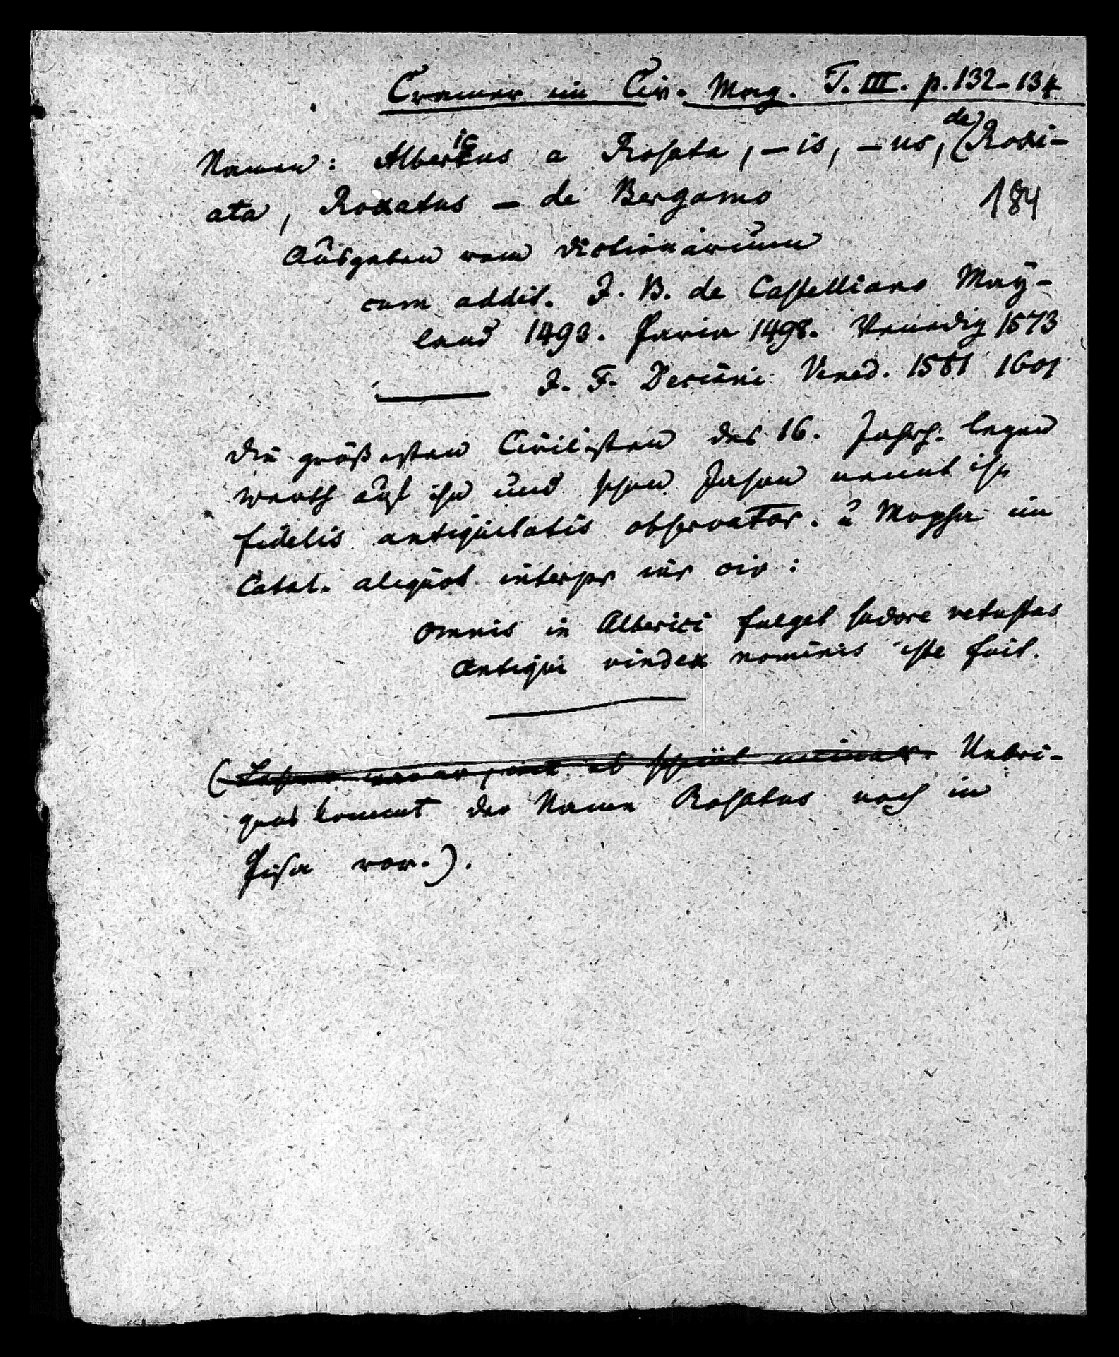 Cramer im Civ. Mag. T. III. p. 132–134
Namen: Albericus a Rosata, –is, –us, de (Roxi-
ata, Roxatus – de Bergamo
184
Ausgaben vom dictionarium
cum addit. J. B. de Castelliano May-
land 1493. Pavia 1498. Venedig 1573
——— J. F. Deciani Vened. 1581 1601
die größesten Civilisten des 16. Jahrh. legen
werth auf ihn und schon Jason nennt ihn
fidelis antiquitatis observator. u Mopha im
Catal. aliquot interpr iur civ:
omnis in Alberici fulget sudore vetustas
Antiqui vindex nominis iste fuit.
Uebri-
gens kommt der Name Rosatus noch in
Pisa vor.).